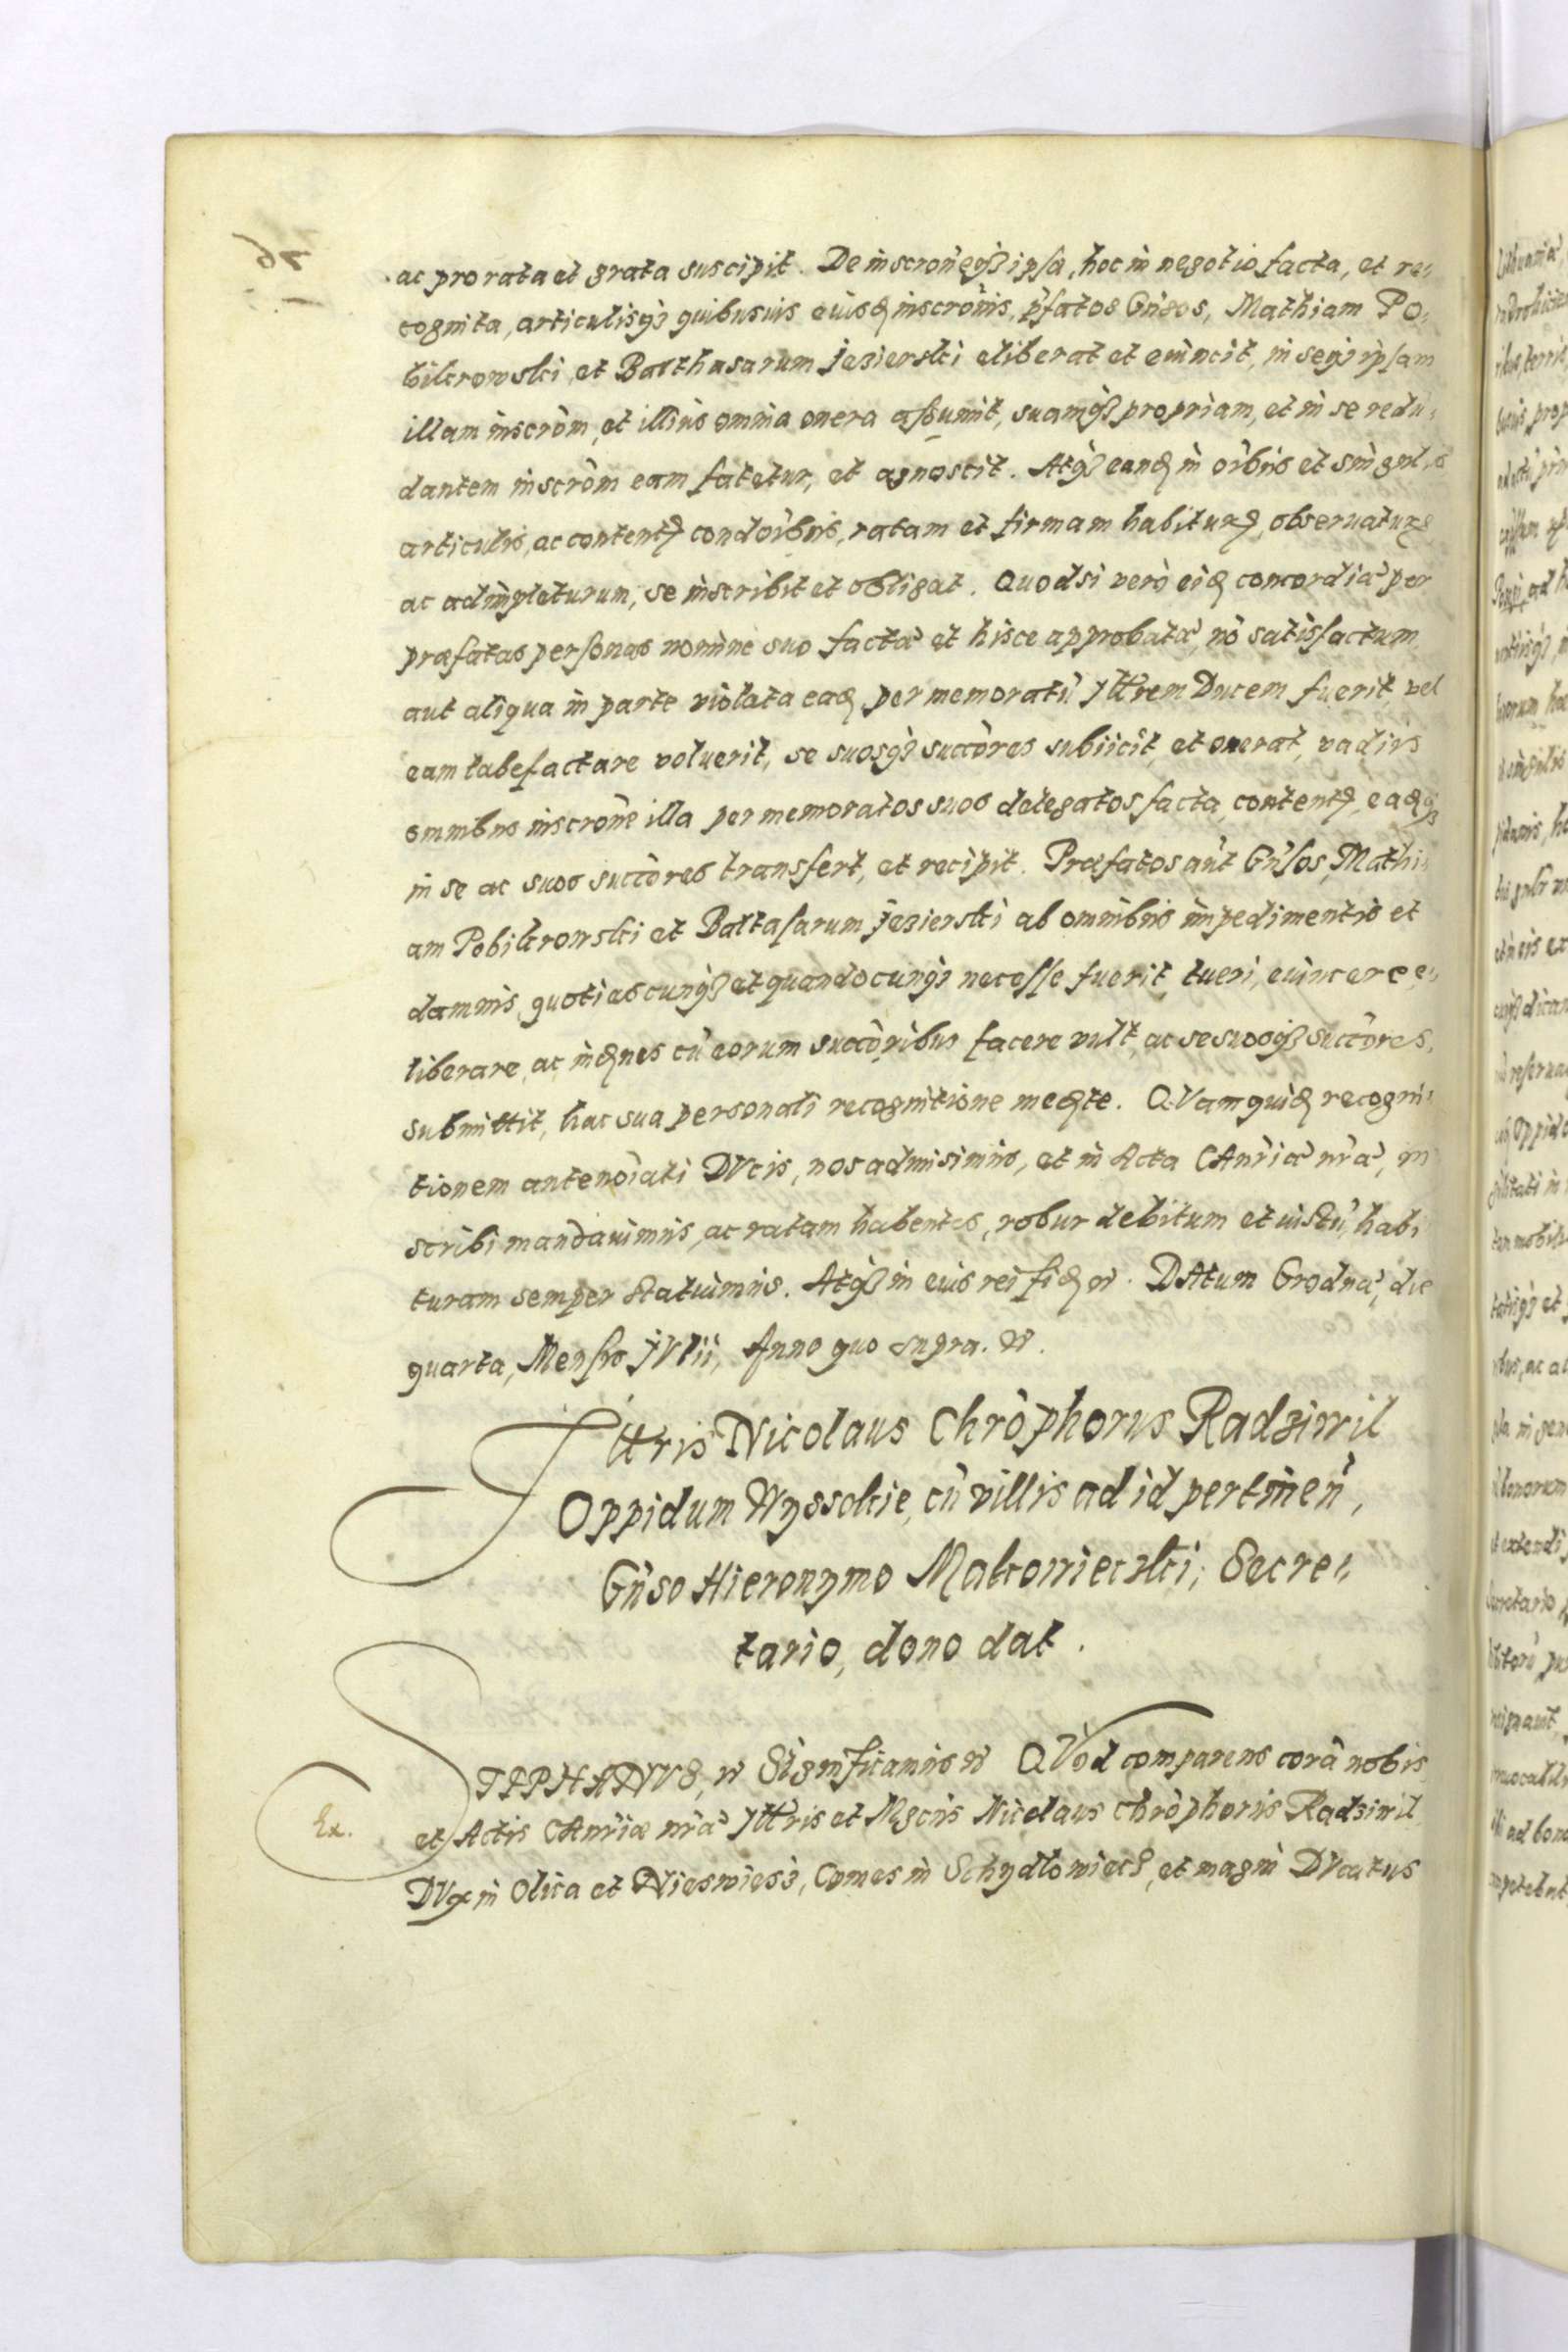 ac pro rata et grata suscipit. De inscroneq3 ipsa, hoc in negotio facta, et re„
cognita, articulisq3 quibusuis euisđ inscronis, pfatos Gnsos, Mathiam Po„
bikrowski et Balthasarum Jezierski eliberat et euincit, in seq3 ipsam
illam inscrom, et illius omnia onera assumit, suamq3 propriam, et in se redu„
dantem inscrom eam fatetur, et agnoscit. Atq3 eanđ in oibus et singulis
articulis, ac contentis condoibus, ratam et firmam habiturz, obseruaturz
ac adimpleturum, se inscribit et obligat. Quodsi vero eiđ concordiæ per
præfatas personas nomine suo factæ et hisce approbatæ, no satisfactum
aut aliqua in parte violata eađ per memoratu Jllrem Ducem fuerit, vel
eam labefactare voluerit, se suosq3 succores subiicit, et onerat, vadiis
omnibus inscrone illa per memoratos suos delegatos facta contentis, eađq3
in se ac suos succores transfert, et recipit. Præfatos aut Gnsos, Mathi„
am Pobikrowski et Baltasarum Jezierski ab omnibus impedimentis et
damnis, quotiescunq3 et quandocunq3 necesse fuerit, tueri, euincere, e„
liberare, ac inđnes cu eorum succoribus facere vult, ac se suosq3 succores
submittit, hac sua personali recognitione međte. QVam quiđ recogni„
tionem antenoiati DVcis, nos admisimus, et in Acta CAnriæ nræ, in
scribi mandauimus, ac ratam habentes, robur debitum et iustu, habi
turam semper statuimus. Atq3 in euis rei fiđ &. DAtum Grodnæ, die
quarta, Mensis JVlii, Anno quo supra. &.
Jllris Nicolaus Chrophorus Radziwil
Oppidum Wyssokie, cu villis ad id pertinen,
Gnso Hieronymo Makowieczki, Secre„
tario, dono dat.
Ex.
STEPHANVS, & Significamus & QVod comparens cora nobis
et Actis CAnriæ nræ Jllris et Mgcus Nicolaus Chrophorus Radziwil
DVx in Olica et Nieswiesz, Comes in Schydlowiecz, et magni DVcatus